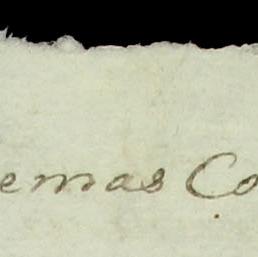 emas Co